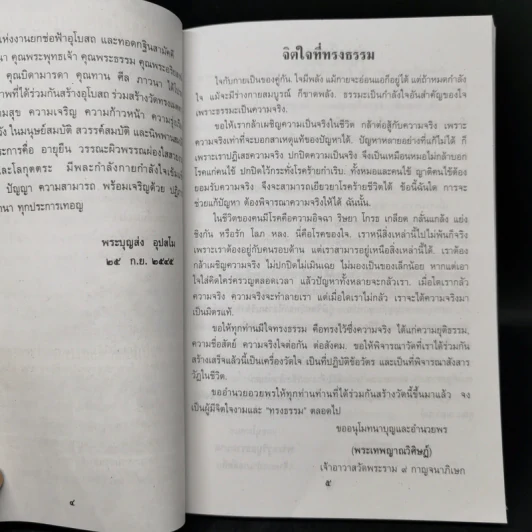 แห่งงานยกช่อฟ้าอุโบสถ และทอดกฐินสามัคคี
นา คุณพระพุทธเจ้า คุณพระธรรม คุณพระอริยสงฆ์
คุณบิดามารดา คุณทาน ศีล ภาวนา ได้โปรด
าพที่ได้ร่วมกันสร้างอุโบสถ ร่วมสร้างวัดทรงแดน
ามสุข ความเจริญ ความก้าวหน้า ความรุ่งเรือง
ัง ในมนุษย์สมบัติ สวรรค์สมบัติ และนิพพานสมบัติ
ะการคือ อายุยืน วรรณะผิวพรรณผ่องใส
ละโลกุตตระ มีพละกำลังกายกำลังใจเข้มแข็ง
ปัญญา ความสามารถ พร้อมเจริญด้วย ปฏิภาณ
นา ทุกประการเทอญ
พระบุญส่ง อุปสโม
๒๕ ก.ย. ๒๕๔๕
๔
จิตใจที่ทรงธรรม
ใจกับกายเป็นของคู่กัน ใจมีพลัง แม้กายจะอ่อนแอก็อยู่ได้ แต่ถ้าหมดกำลัง
ใจ แม้จะมีร่างกายสมบูรณ์ ก็ขาดพลัง ธรรมะเป็นกำลังใจอันสำคัญของใจ
เพราะธรรมะเป็นความจริง
ขอให้เรากล้าเผชิญความเป็นจริงในชีวิต กล้าต่อสู้กับความจริง เพราะ
ความจริงเท่าที่จะบอกสาเหตุแท้ของปัญหาได้ ปัญหาหลายอย่างที่แก้ไม่ได้ ก็
เพราะเราปฏิเสธความจริง ปกปิดความเป็นจริง จึงเป็นเหมือนหมอไม่กล้าบอก
โรคแก่คนไข้ ปกปิดไว้กระทั่งโรคร้ายกำเริบ ทั้งหมอและคนไข้ ญาติคนไข้ต้อง
ยอมรับความจริง จึงจะสามารถเยียวยาโรคร้ายชีวิตได้ ข้อนี้ฉันใด การจะ
ช่วยแก้ปัญหา ต้องพิจารณาความจริงให้ได้ ฉันนั้น
ในชีวิตของคนมีโรคคือความอิจฉา ริษยา โกรธ เกลียด กลั่นแกล้ง แย่ง
ชิงกัน หรือรัก โลภ หลง นี่คือโรคของใจ เราหนีสิ่งเหล่านี้ไปไม่พ้นก็จริง
เพราะเราต้องอยู่กับคนรอบด้าน แต่เราสามารถอยู่เหนือสิ่งเหล่านี้ได้ เราต้อง
กล้าเผชิญความจริง ไม่ปกปิดไม่เมินเฉย ไม่มองเป็นของเล็กน้อย หากแต่เอา
ใจใส่คิดใคร่ครวญตลอดเวลา แล้วปัญหาทั้งหลายจะกลัวเรา เมื่อใดเรากลัว
ความจริง ความจริงจะทำลายเรา แต่เมื่อใดเราไม่กลัว เราจะได้ความจริงมา
เป็นมิตรแท้
ขอให้ทุกท่านมีใจทรงธรรม คือทรงไว้ซึ่งความจริง ได้แก่ความยุติธรรม,
ความซื่อสัตย์ ความจริงใจต่อกัน ต่อสังคม ขอให้พิจารณาวัดที่เราได้ร่วมกัน
สร้างเสร็จแล้วนี้เป็นเครื่องวัดใจ เป็นที่ปฏิบัติข้อวัตร และเป็นที่พิจารณาสังสาร
วัฏในชีวิต
ขออำนวยอวยพรให้ทุกท่านท่านที่ได้ร่วมกันสร้างวัดนี้ขึ้นมาแล้ว จง
เป็นผู้มีจิตใจงามและ "ทรงธรรม" ตลอดไป
ขออนุโมทนาบุญและอำนวยพร
(พระเทพญาณวิศิษฏ์)
เจ้าอาวาสวัดพระราม ๙ กาญจนาภิเษก
๕